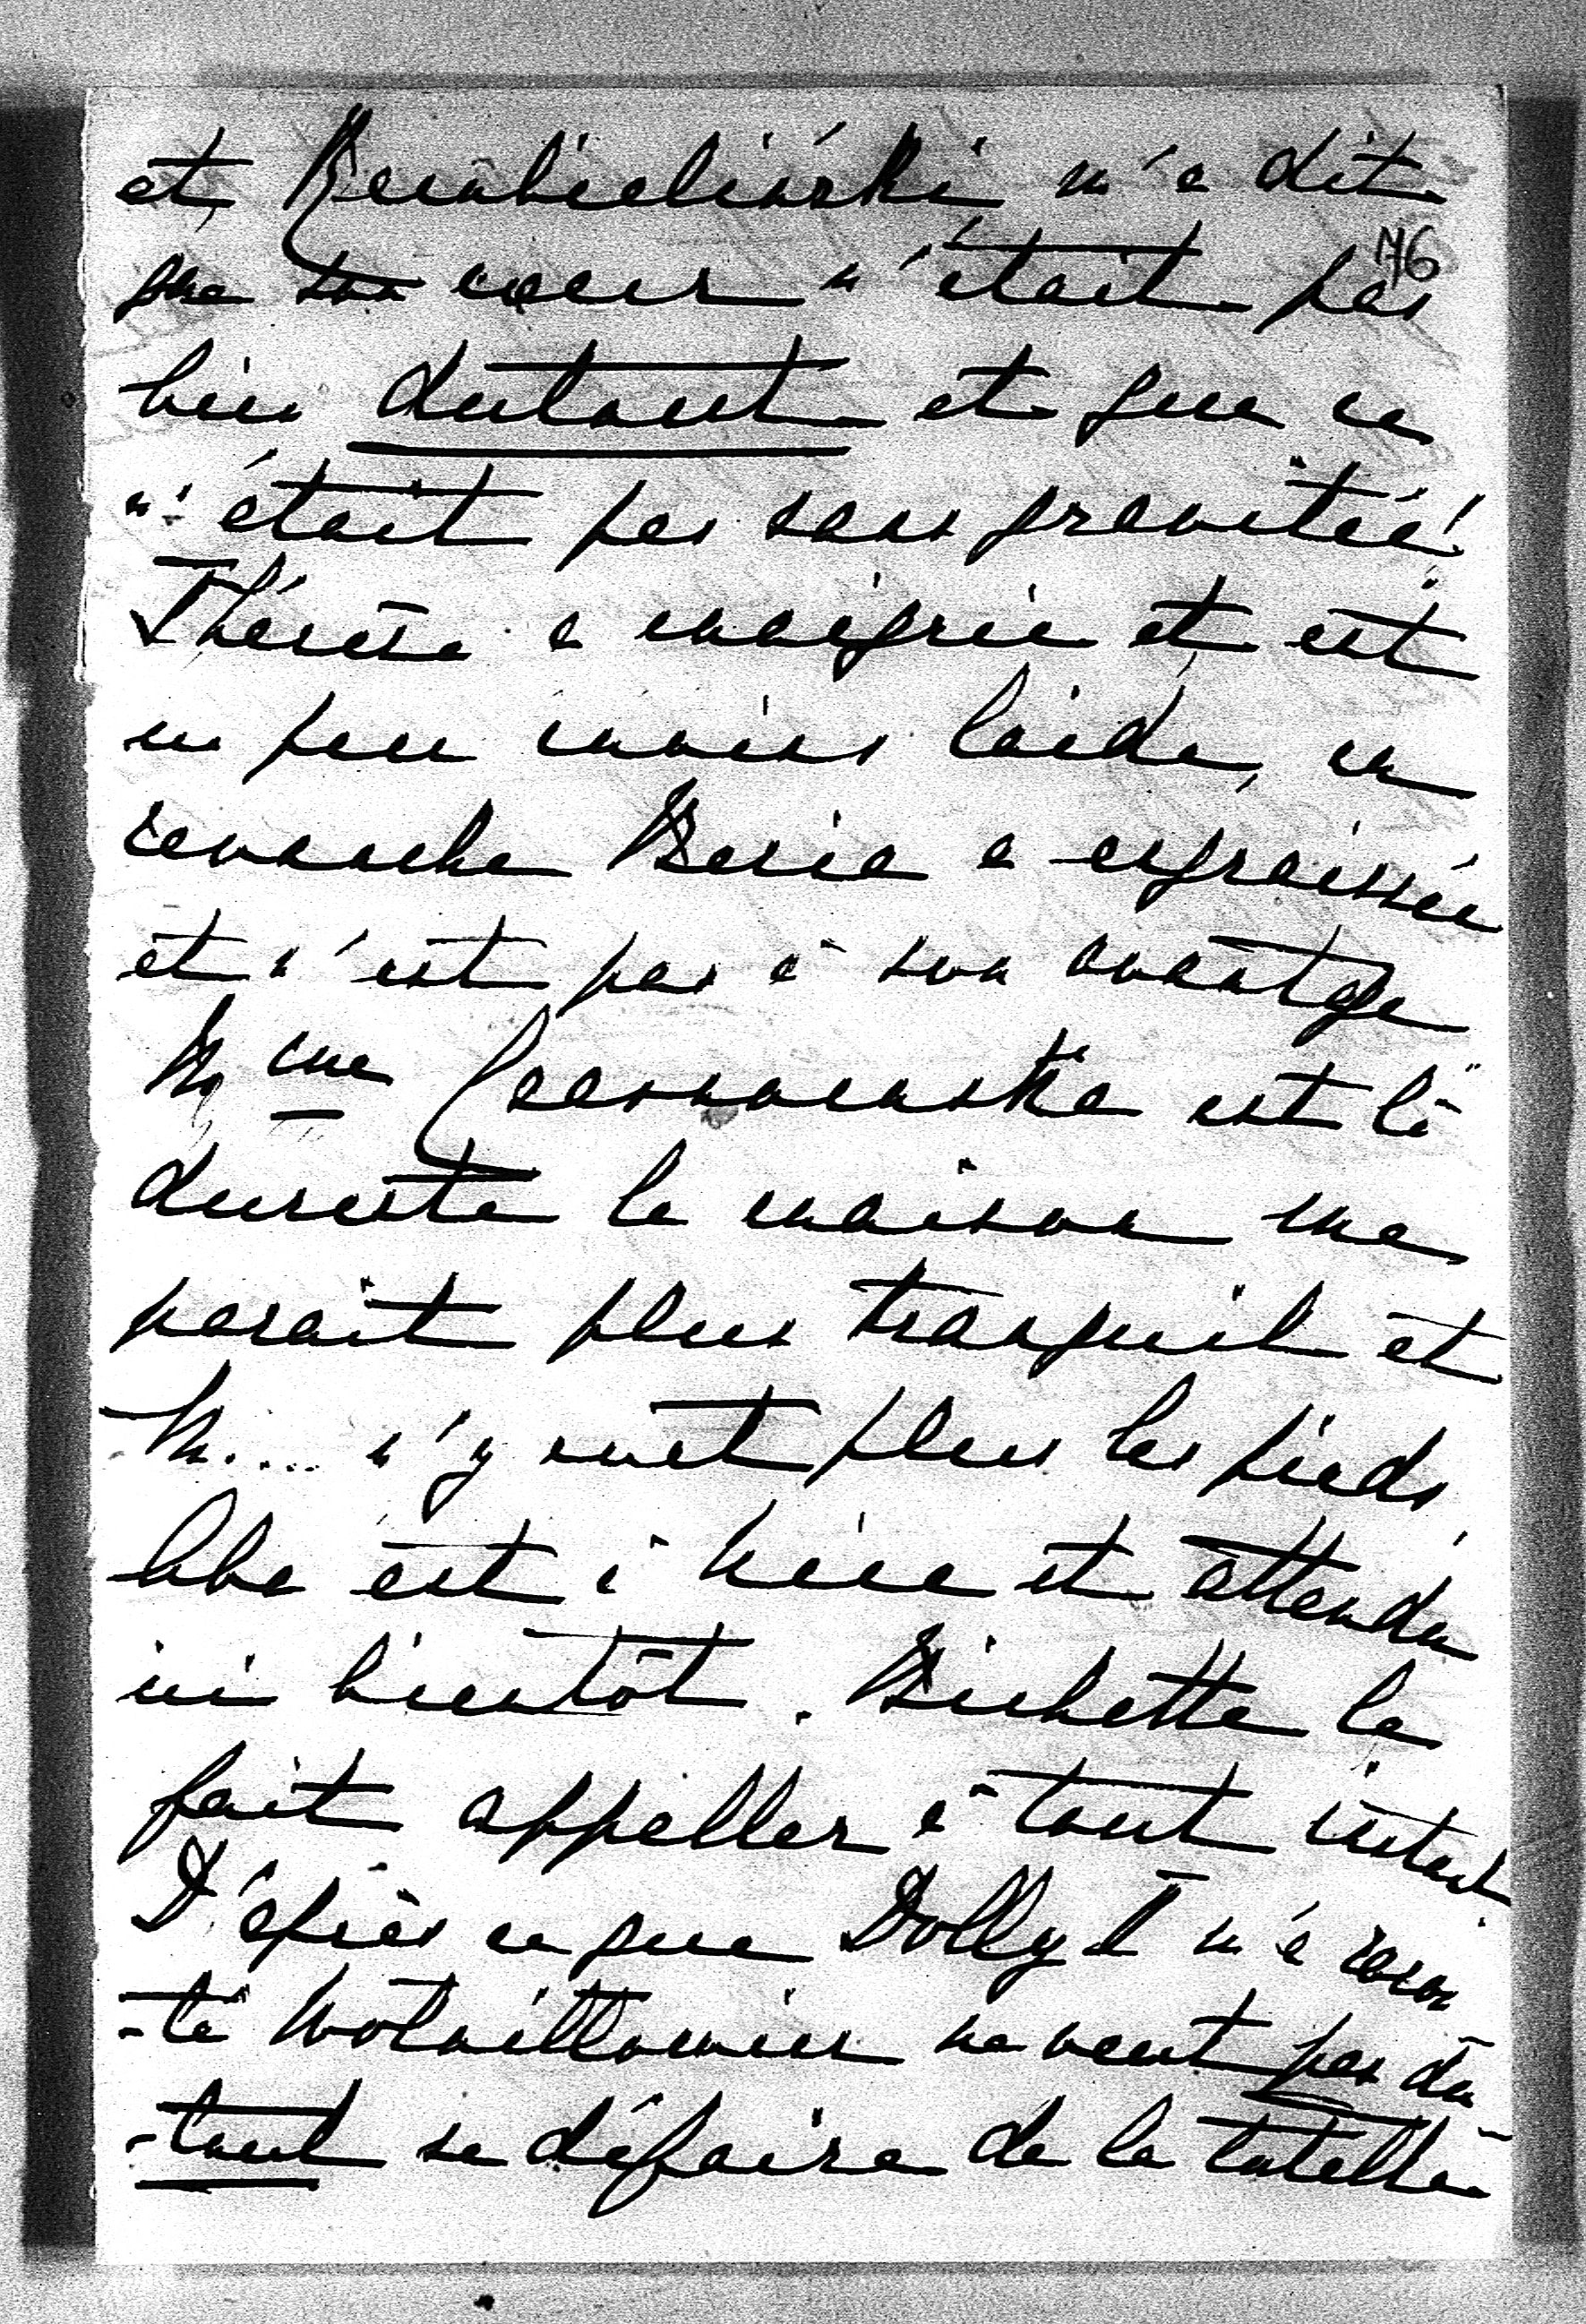 et Rembieliński m'a dit
76
que son coeur n'était pas
bien dutout et que ce
n'était pas sans gravitée!
Thérèse a maigrie et est
un peu moins laide, en
revanche Maria a engraissée
et n'est pas à son avantge
Mme est là
dureste la maison me
parait plus tranquil et
M.... n'y met plus les pieds,
est à Nice et attendu
ici bientôt. Bichette la
fait appeller à tout instant
D'après ce que Dolly T m'a racon
-té ne veut pas du
-tout se défaire de la tutelle